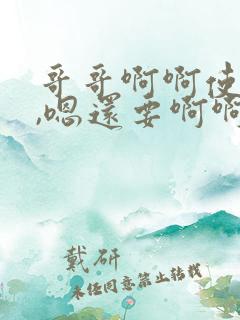 哥哥啊啊使
,嗯还要啊啊
戴研
未经同意禁止转载